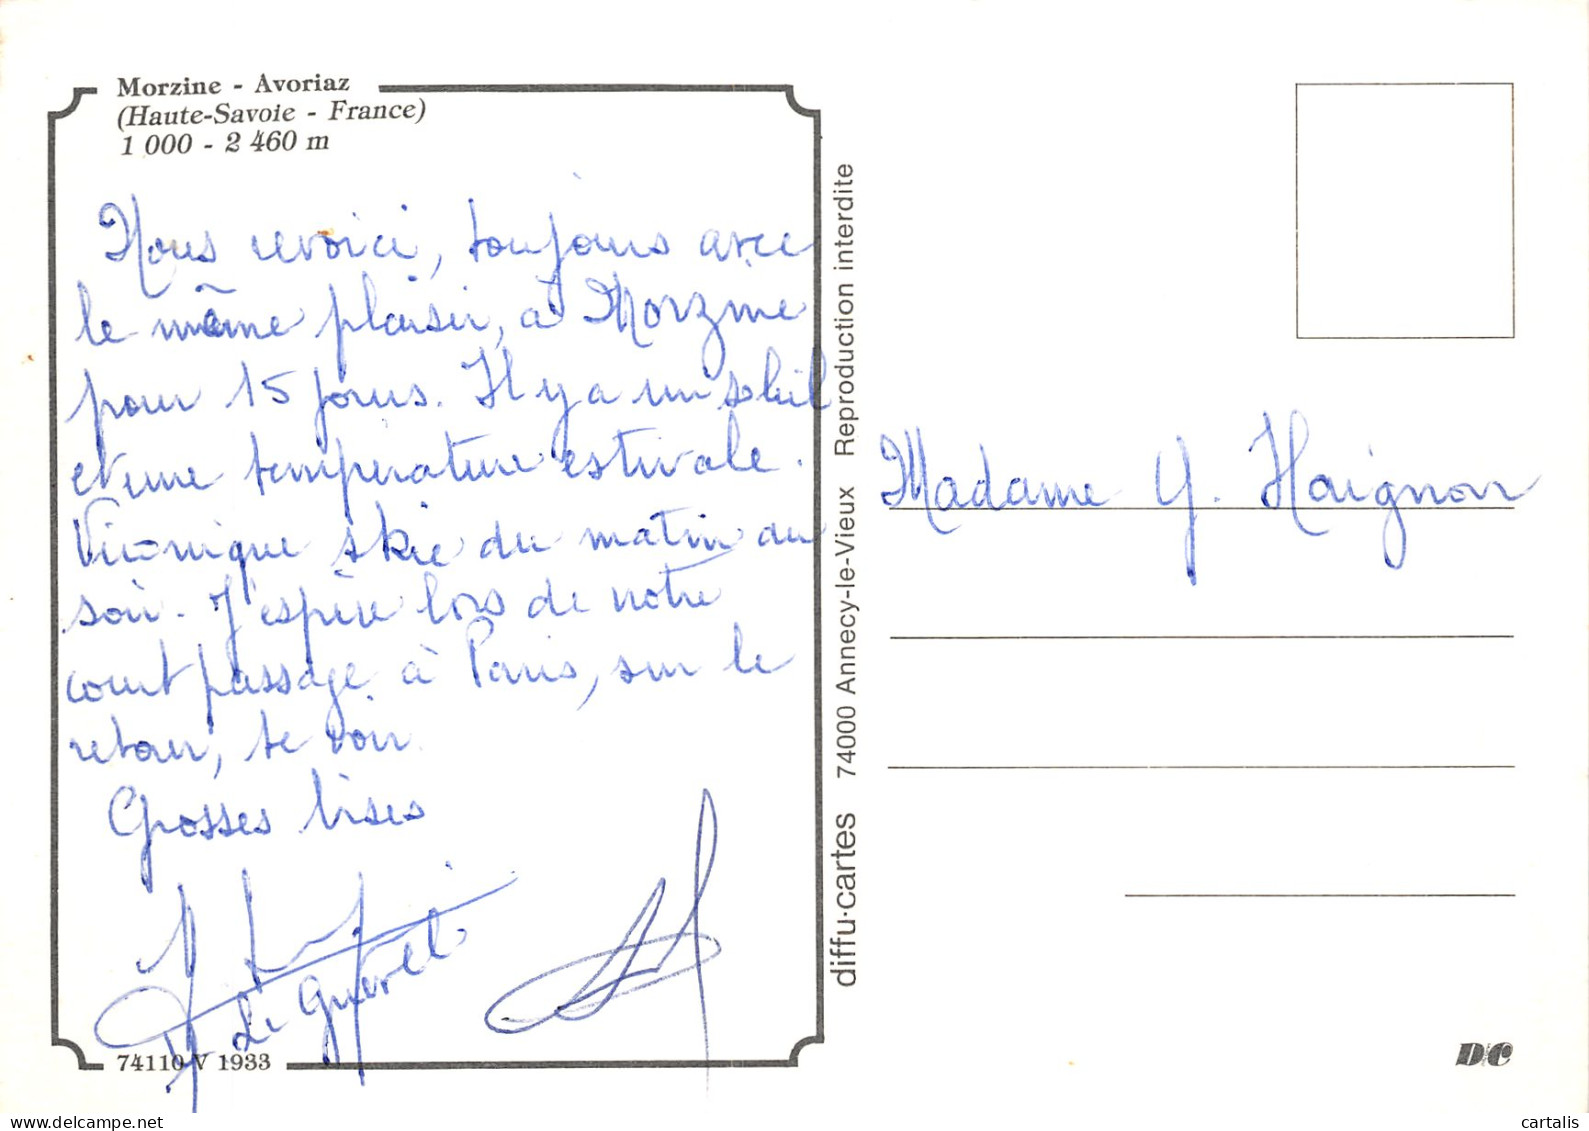 Morzine - Avoriaz
(Haute-Savoie - France)
1 000 - 2 460 m
Nous revoici, toujours avec
le même plaisir, à Morzine
pour 15 jours. Il y a un soleil
et une température estivale.
Véronique skie du matin au
soir. J'espère lors de notre
court passage à Paris, sur le
retour, te voir.
Grosses bises
Le
74110 V 1933
diffu·cartes 74000 Annecy-le-Vieux Reproduction interdite
Madame Y. Haignon
D/C
delcampe.net
cartalis